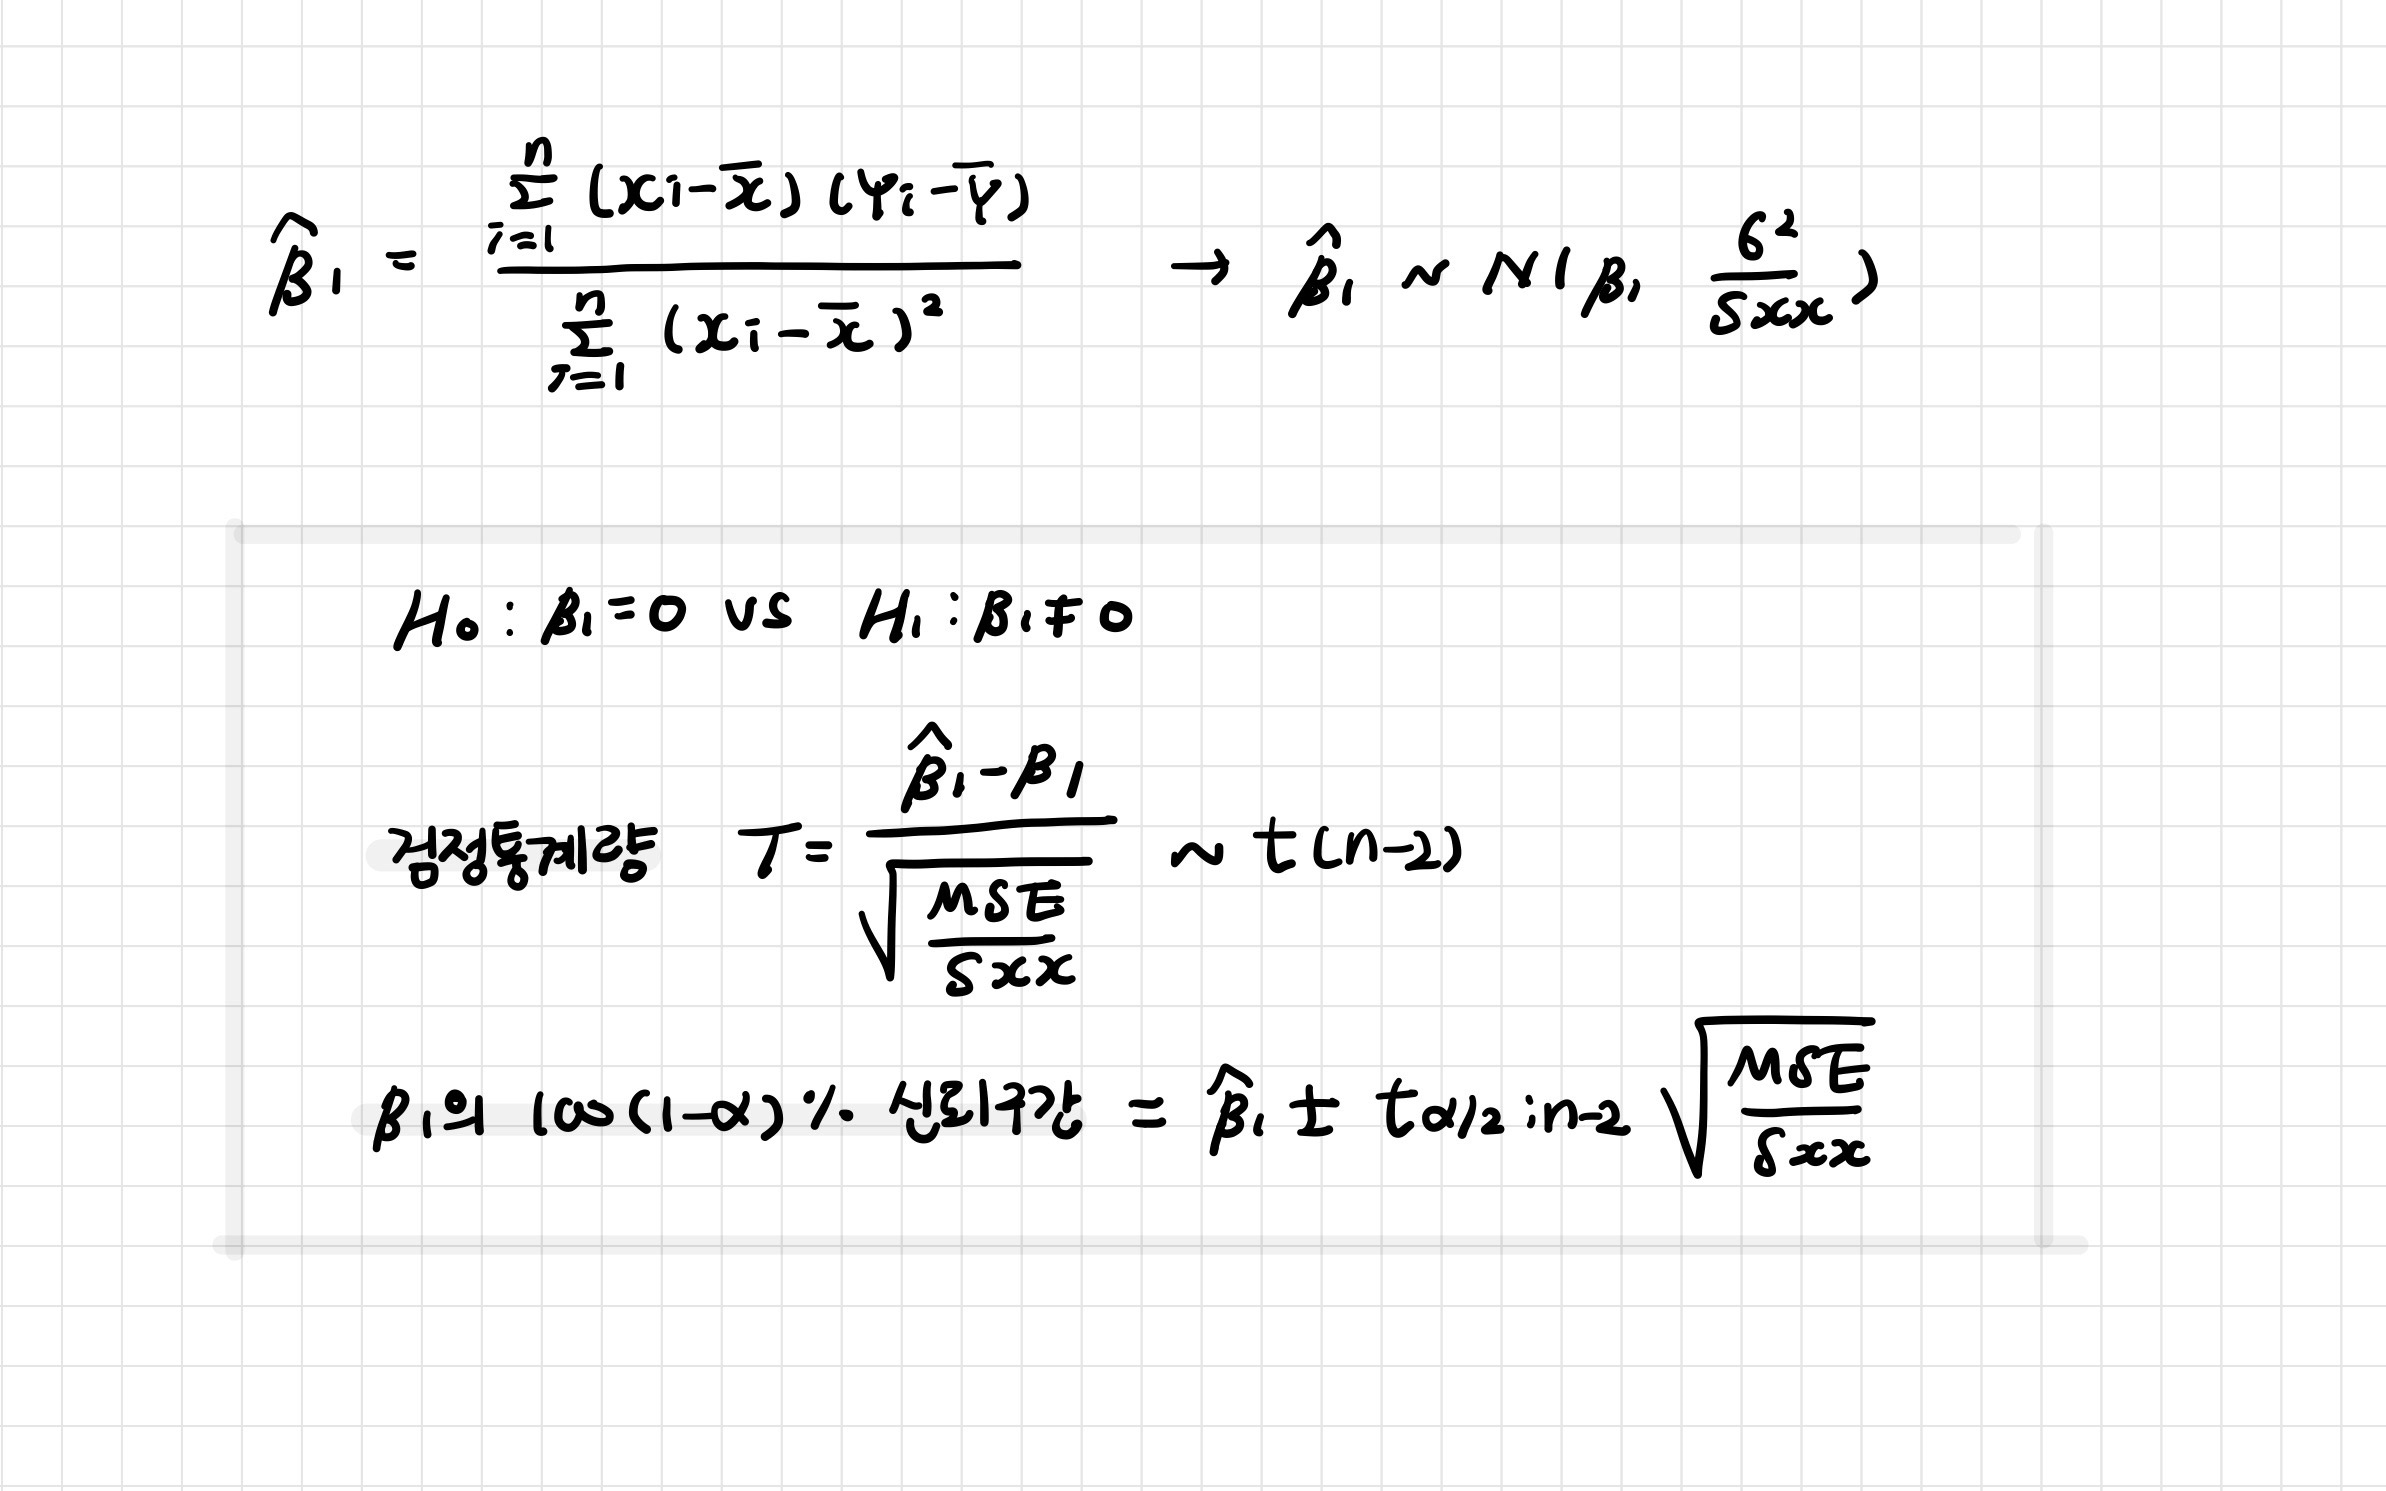 β̂₁ = \frac{\sum_{i=1}^{n} (x_i - \bar{x})(y_i - \bar{y})}{\sum_{i=1}^{n} (x_i - \bar{x})^2} → β̂₁ ~ N(β₁, \frac{σ²}{Sxx})
H₀ : β₁ = 0 vs H₁ : β₁ ≠ 0
검정통계량 T = \frac{β̂₁ - β₁}{\sqrt{\frac{MSE}{Sxx}}} ~ t(n-2)
β₁의 100(1-α)% 신뢰구간 = β̂₁ ± t_{α/2;n-2} \sqrt{\frac{MSE}{Sxx}}